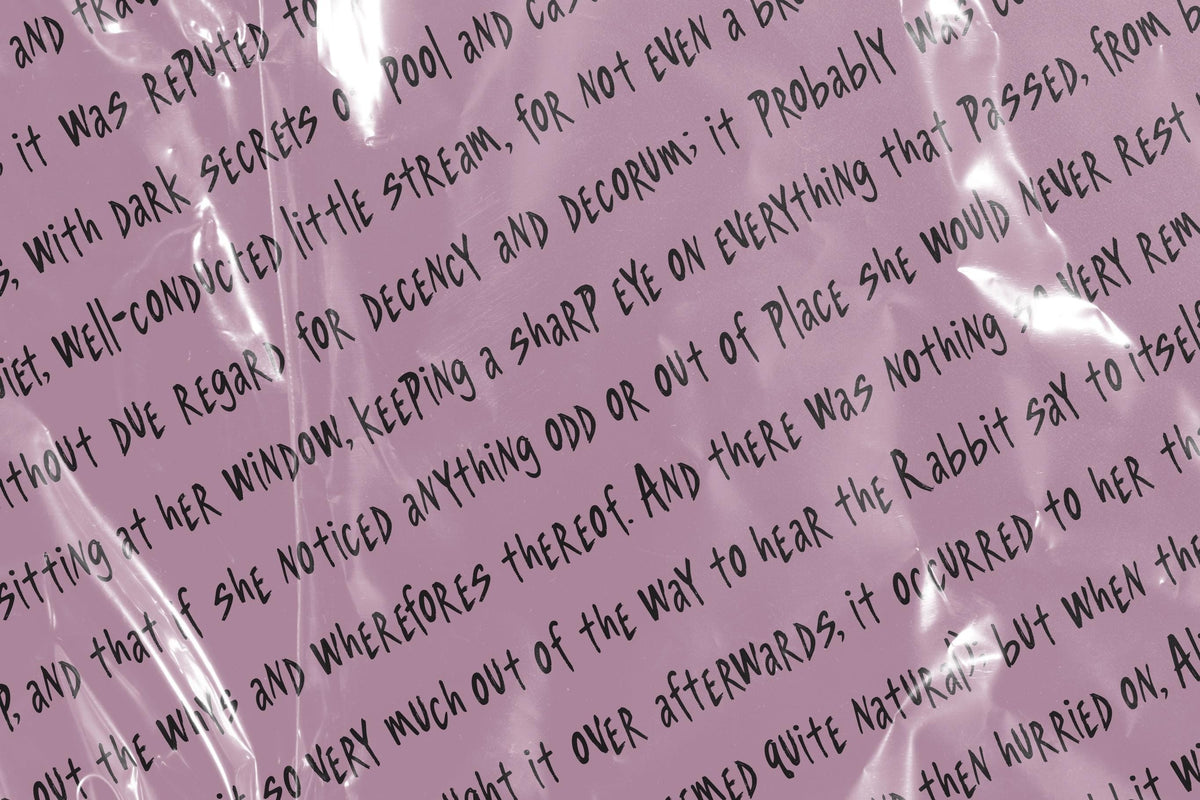 and
it was reputed to
with dark secrets of pool and
well-conducted little stream, for not even a
due regard for decency and decorum; it probably was
sitting at her window, keeping a sharp eye on everything that passed, from
and that if she noticed anything odd or out of place she would never rest
out the whys and wherefores thereof. And there was nothing so very
it so very much out of the way to hear the Rabbit say to itself
it over afterwards, it occurred to her
quite natural); but when the
then hurried on,